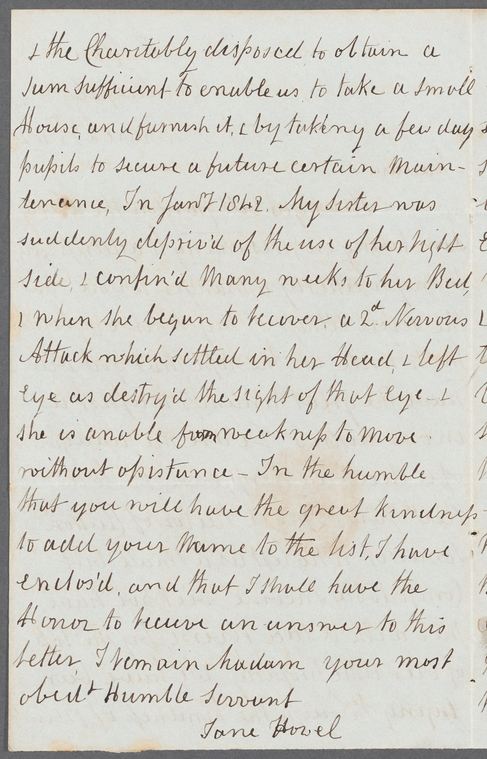 & the Charitably disposed to obtain a
sum sufficient to enable us to take a small
House, and furnish it, & by taking a few day
pupils to secure a future certain main-
tenance, In Jany 1842. My Sister was
suddenly depriv'd of the use of her right
side, & confin'd many weeks to her Bed,
& when she began to recover, a 2d Nervous
Attack which settled in her Head, & left
eye as destry'd the sight of that eye - &
she is unable from weakness to move
without assistance - In the humble
that you will have the great kindness
to add your Name to the list, I have
enclos'd, and that I shall have the
Honor to receive an answer to this
letter I remain Madam your most
obedt Humble Servant
Jane Hovel